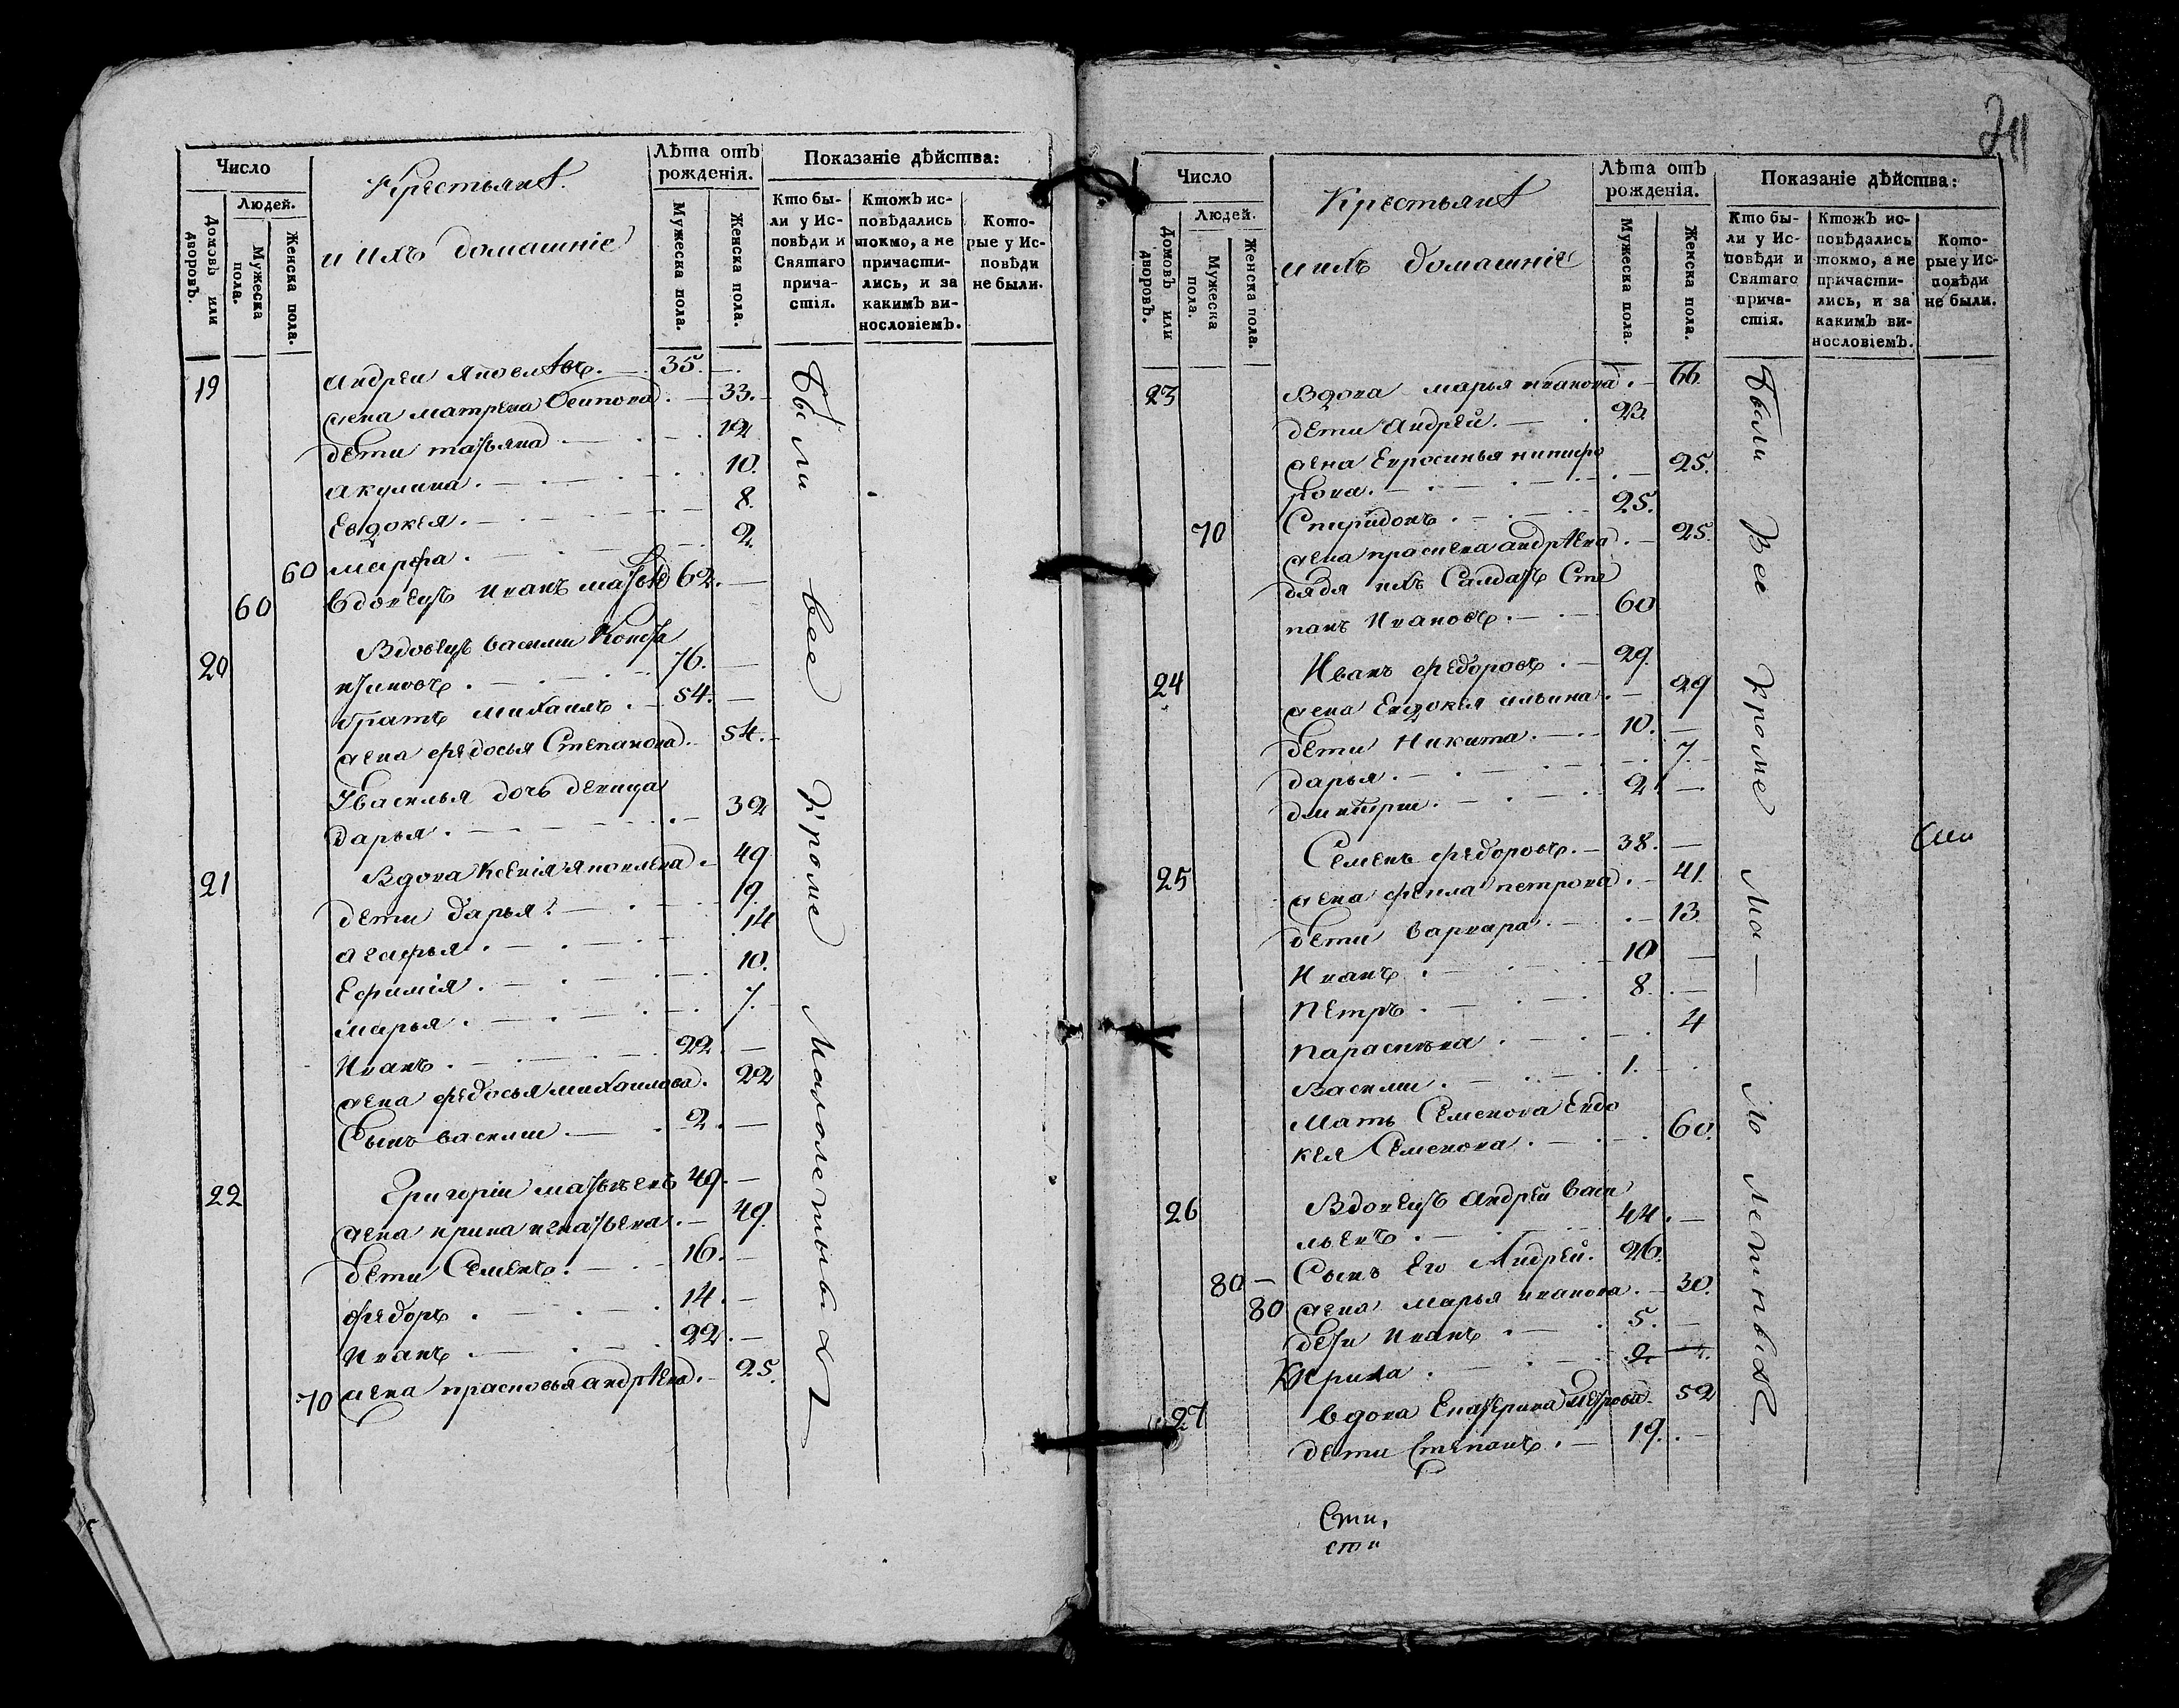 Число
Людей.
Домовъ или дворовъ.
Мужеска пола.
Женска пола.
Крестьянѣ
и ихъ домашніе
Лѣта отъ рожденія.
Мужеска пола.
Женска пола.
Показаніе дѣйства:
Кто бы-
ли у Ис-
повѣди и
Святаго
прича-
стія.
Ктожъ ис-
повѣдались
токмо, а не
причасти-
лись, и за
какимъ ви-
нословіемъ.
Кото-
рые у Ис-
повѣди
не были.
19 Андреи Яковлевъ 35.
жена матрена Осипова 33.
дети татьяна 12
акулина 10.
Евдокея 8.
60 марфа 2
60 вдовецъ иванъ матвѣев 62.
20 Вдовецъ василии Конста
нтиновъ 76.
братъ михаилъ 54.
жена федосья Степанова 54.
У василья дочь девица
дарья 32
21 Вдова Ксенія яковлева 49
дети дарья 19
агафья 14
Ефимія 10.
марья 7.
Иванъ 22
жена федосья михаилова 22
Сынъ василии 2
22 Григоріи матвеевъ 49.
жена ирина игнатьева 49.
дети Семенъ 16.
федоръ 14.
Иванъ 22.
70 жена прасковья андрѣева 25.
Были все кроме Малолетныхъ
Число
Людей.
Домовъ или дворовъ.
Мужеска пола.
Женска пола.
Крестьянѣ
и ихъ домашніе
Лѣта отъ рожденія.
Мужеска пола.
Женска пола.
Показаніе дѣйства:
Кто бы-
ли у Ис-
повѣди и
Святаго
прича-
стія.
Ктожъ ис-
повѣдались
токмо, а не
причасти-
лись, и за
какимъ ви-
нословіемъ.
Кото-
рые у Ис-
повѣди
не были.
23 Вдова марья иванова 66.
дети Андрей 23
жена Евросинья никифо
рова 25.
70 Спиридонъ 25.
жена прасковя андрѣева 25.
дядя ихъ Салдатъ Сте
панъ Ивановъ 60
24 Иванъ федоровъ 29.
жена Евдокея ильина 29
дети Никита 10.
дарья 7.
дмитрии 2
25 Семенъ федоровъ 38.
жена фекла петрова 41.
дети варвара 13
Иванъ 10
Петръ 8.
Парасковья 4
Василии 1.
Мать Семенова Евдо
кея Семенова 60.
26 Вдовецъ андрей васи
льевъ 44.
80 Сынъ Его Андрей 26.
80 жена марья иванова 30.
дети Иванъ 5.
Ирина 2
27 вдова Екатерина петрова 52
дети Степанъ 19.
Были Все кроме Ма- ло летныхъ
Сти,
сти